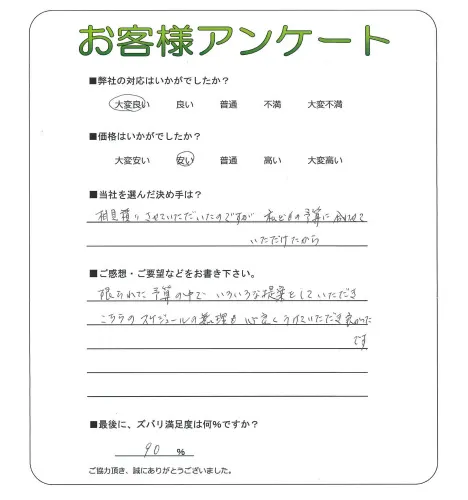 お客様アンケート
■弊社の対応はいかがでしたか？
大変良い 良い 普通 不満 大変不満
■価格はいかがでしたか？
大変安い 安い 普通 高い 大変高い
■当社を選んだ決め手は？
相見積りさせていただいたのですが 私どもの予算に合わせて
いただけたから
■ご感想・ご要望などをお書き下さい。
限られた予算の中で いろいろな提案をしていただき
こちらのスケジュールの無理も 心良くうけていただき良かった
です
■最後に、ズバリ満足度は何％ですか？
90 ％
ご協力頂き、誠にありがとうございました。